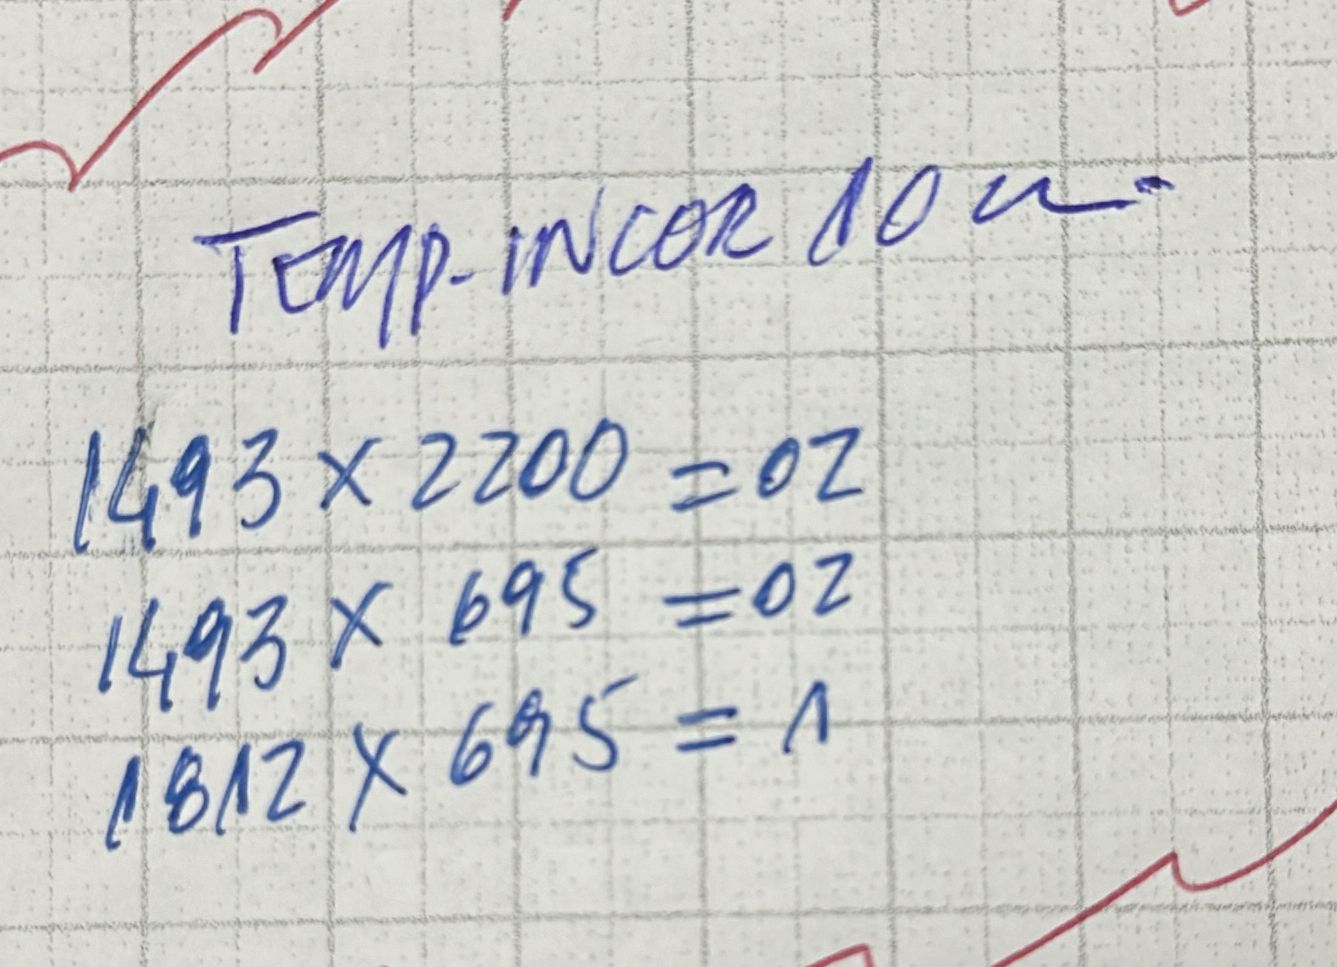 TEMP-INCOR 10 m.
1493 x 2200 = 02
1493 x 695 = 02
1812 x 695 = 1